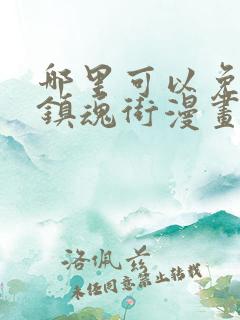 哪里可以免
鎮魂街漫畫
洛佩兹
未经同意禁止转载